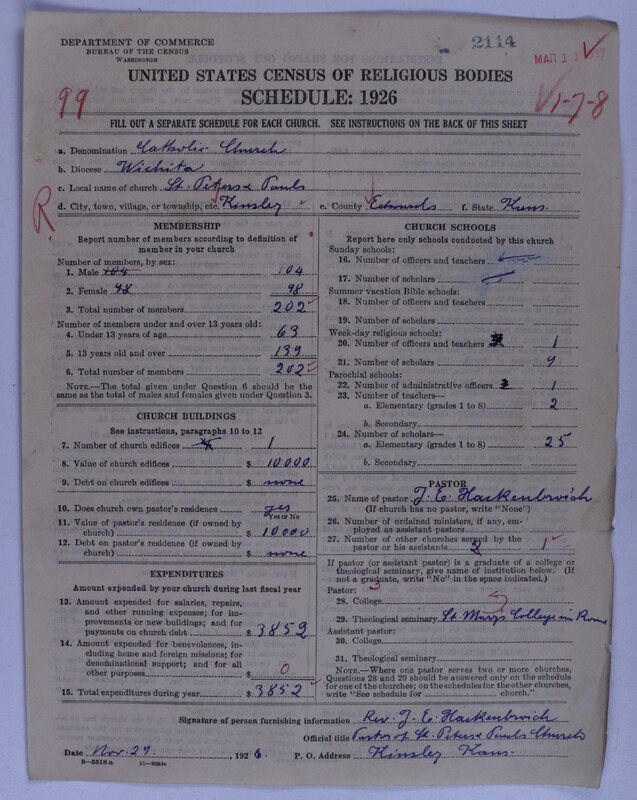 DEPARTMENT OF COMMERCE
BUREAU OF THE CENSUS
WASHINGTON
2114
MAR 1
UNITED STATES CENSUS OF RELIGIOUS BODIES
SCHEDULE: 1926
99
1-7-8
FILL OUT A SEPARATE SCHEDULE FOR EACH CHURCH. SEE INSTRUCTIONS ON THE BACK OF THIS SHEET
a. Denomination Catholic Church
b. Diocese Wichita
c. Local name of church St. Peters & Pauls
d. City, town, village, or township, etc. Kinsley e. County Edwards f. State Kans.
R
MEMBERSHIP
Report number of members according to definition of
member in your church
Number of members, by sex:
1. Male 104 104
2. Female 98 98
3. Total number of members 202
Number of members under and over 13 years old:
4. Under 13 years of age 63
5. 13 years old and over 139
6. Total number of members 202
NOTE.—The total given under Question 6 should be the
same as the total of males and females given under Question 3.
CHURCH BUILDINGS
See instructions, paragraphs 10 to 12
7. Number of church edifices 1
8. Value of church edifices $ 10000
9. Debt on church edifices $ none
10. Does church own pastor's residence yes
Yes or No
11. Value of pastor's residence (if owned by
church) $ 10000
12. Debt on pastor's residence (if owned by
church) $ none
EXPENDITURES
Amount expended by your church during last fiscal year
13. Amount expended for salaries, repairs,
and other running expenses; for im-
provements or new buildings; and for
payments on church debt $ 3852
14. Amount expended for benevolences, in-
cluding home and foreign missions; for
denominational support; and for all
other purposes $ 0
15. Total expenditures during year $ 3852
CHURCH SCHOOLS
Report here only schools conducted by this church
Sunday schools:
16. Number of officers and teachers
17. Number of scholars
Summer vacation Bible schools:
18. Number of officers and teachers
19. Number of scholars
Week-day religious schools:
20. Number of officers and teachers 1
21. Number of scholars 9
Parochial schools:
22. Number of administrative officers 1
23. Number of teachers—
a. Elementary (grades 1 to 8) 2
b. Secondary
24. Number of scholars—
a. Elementary (grades 1 to 8) 25
b. Secondary
PASTOR
25. Name of pastor J. E. Hackenbroich
(If church has no pastor, write "None")
26. Number of ordained ministers, if any, em-
ployed as assistant pastors
27. Number of other churches served by the
pastor or his assistants 1
If pastor (or assistant pastor) is a graduate of a college or
theological seminary, give name of institution below. (If
not a graduate, write "No" in the space indicated.)
Pastor:
28. College
29. Theological seminary St Marys College in Rome
Assistant pastor:
30. College
31. Theological seminary
NOTE.—Where one pastor serves two or more churches,
Questions 28 and 29 should be answered only on the schedule
for one of the churches; on the schedules for the other churches,
write "See schedule for church."
Signature of person furnishing information Rev. J. E. Hackenbroich
Official title Pastor of St. Peters & Pauls Church
Date Nov. 29, 1926. P. O. Address Kinsley Kans.